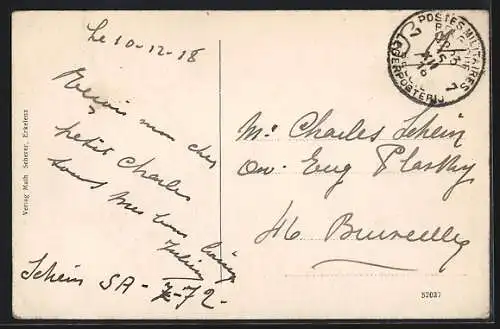 Le 10-12-18
Reçois mon cher
petit Charles
tous mes bons
Julien
Schein SA- 7-72-
Mr Charles Schein
Av. Eug Plasky
46 Bruxelles
POSTES MILITAIRES
LEGERPOSTERIJ
XII
Verlag Math. Scherer, Erkelenz
57037